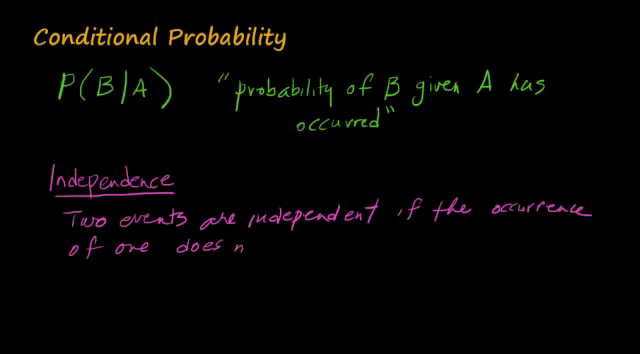 Conditional Probability
P(B|A) "probability of B given A has
occurred"
Independence
Two events are independent if the occurrence
of one does n